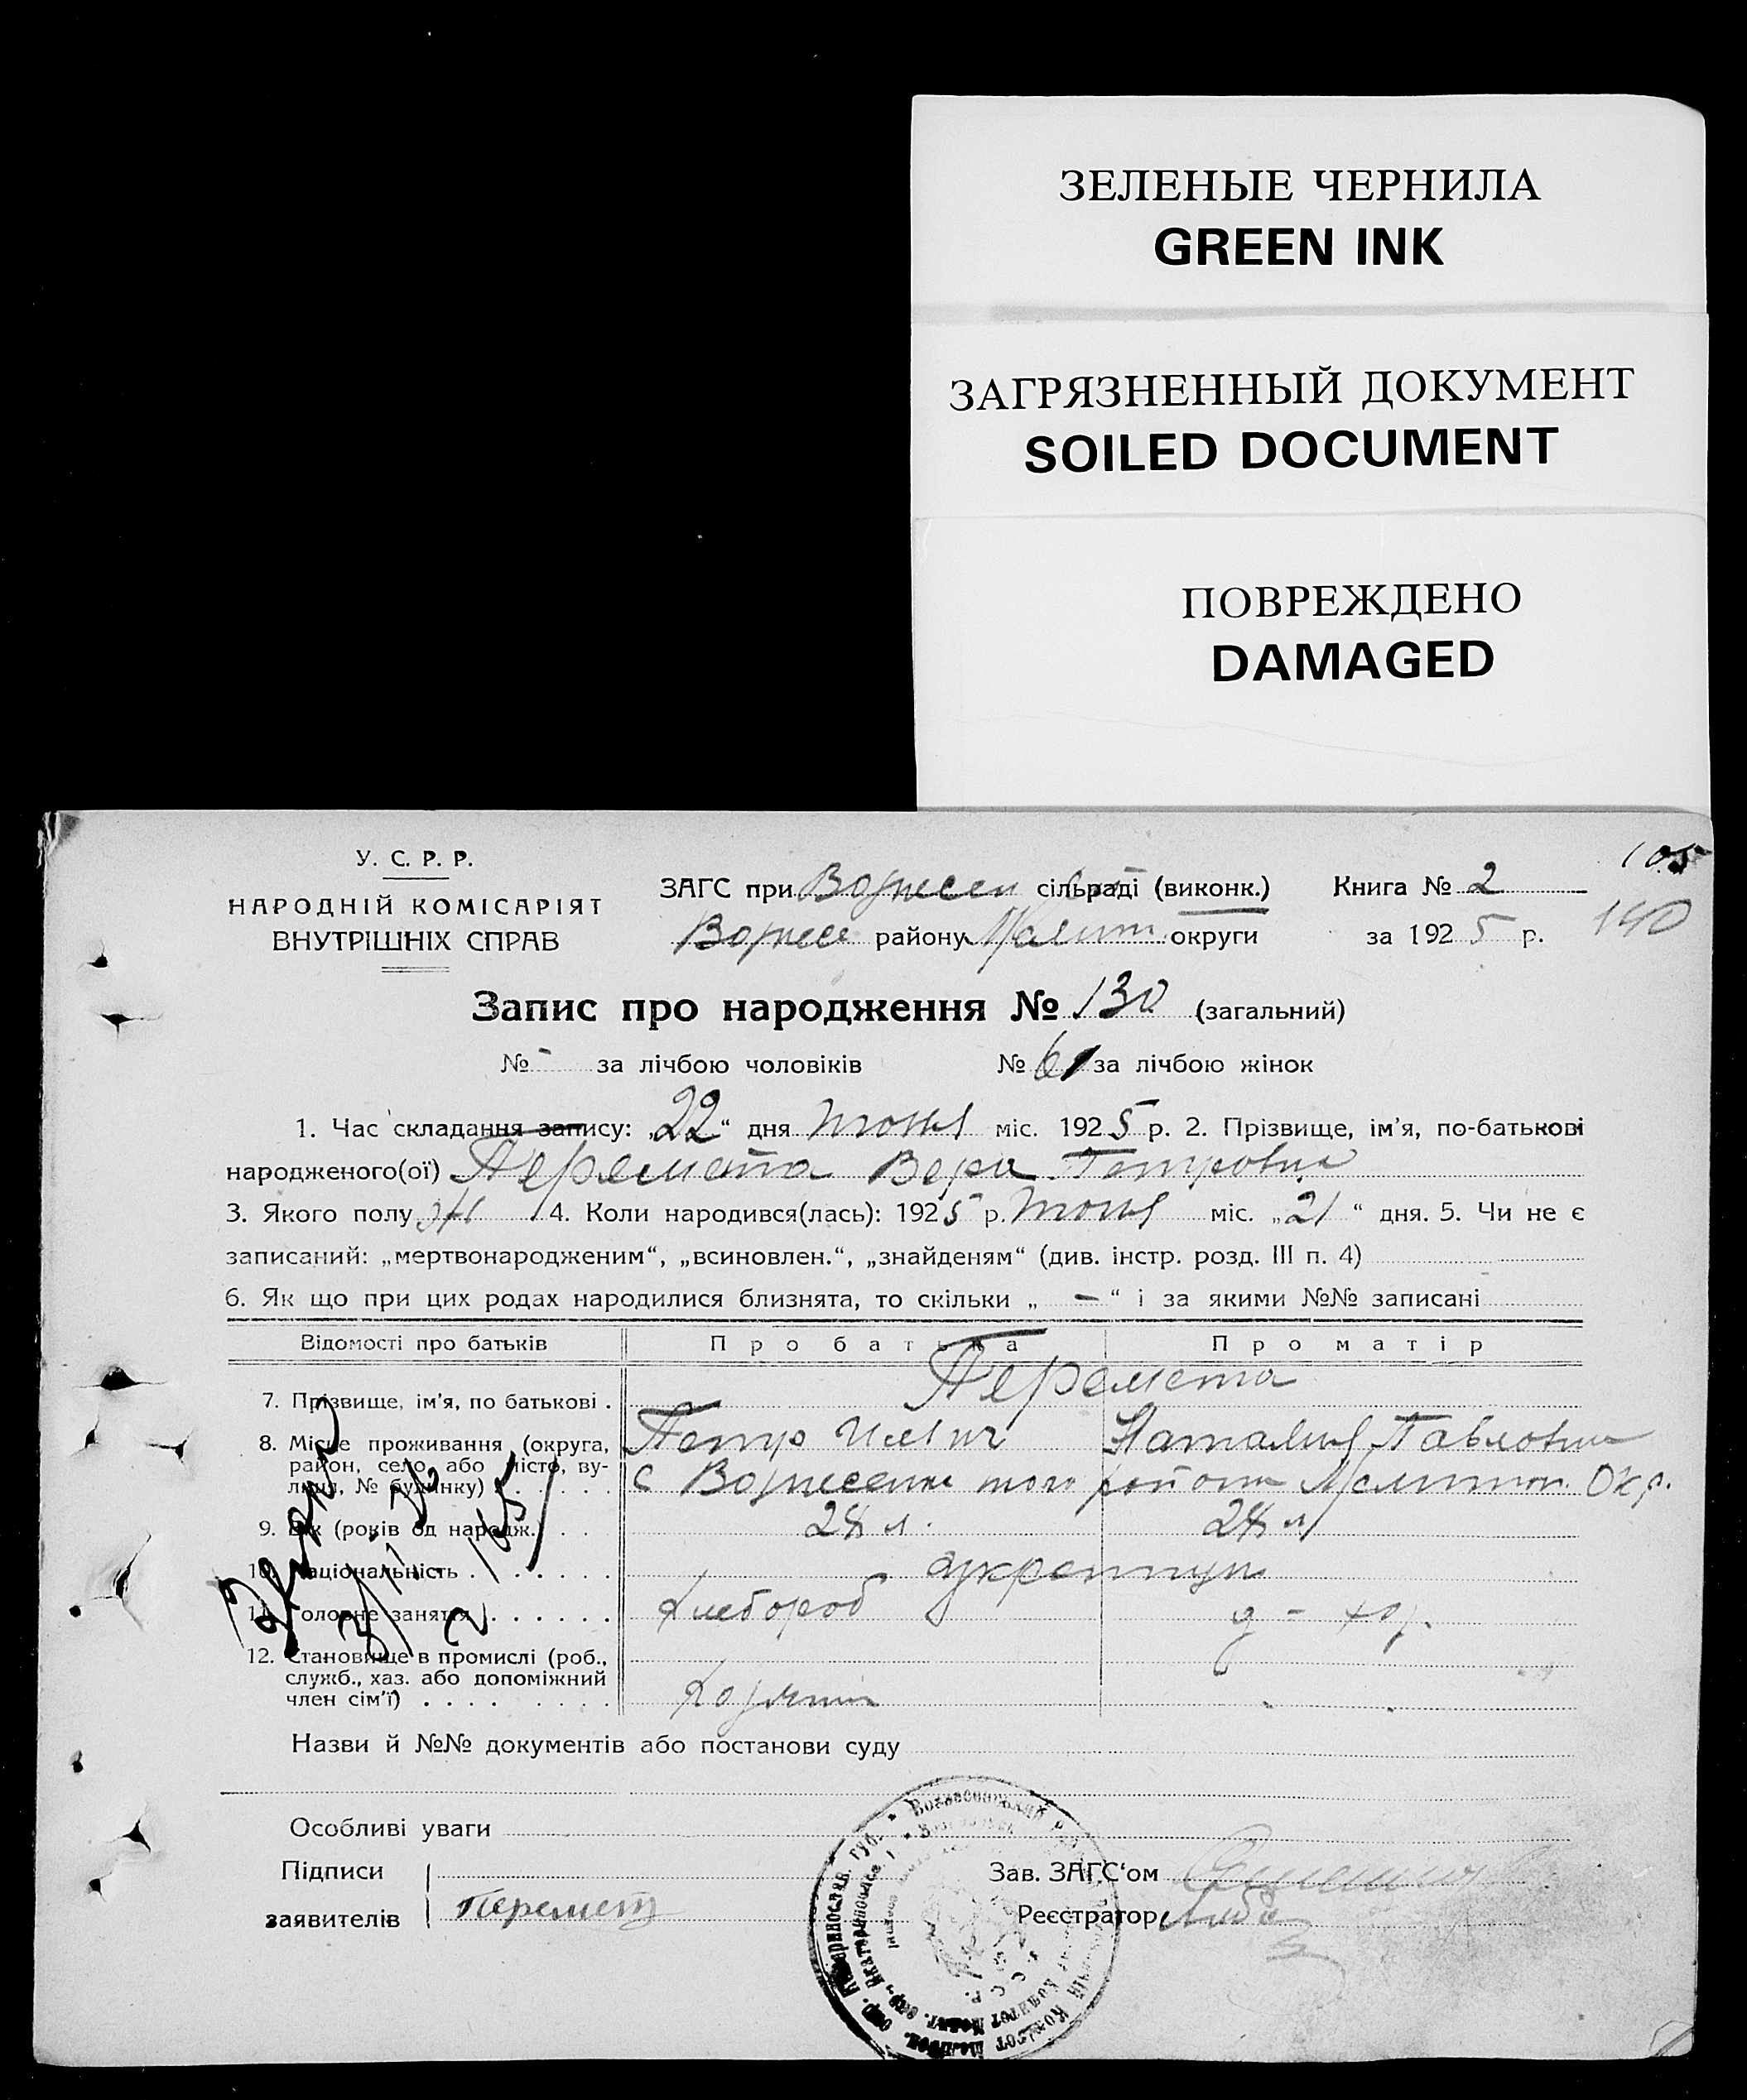 ЗЕЛЕНЫЕ ЧЕРНИЛА
GREEN INK
ЗАГРЯЗНЕННЫЙ ДОКУМЕНТ
SOILED DOCUMENT
ПОВРЕЖДЕНО
DAMAGED
105
140
У. С. Р. Р.
НАРОДНІЙ КОМІСАРІЯТ
ВНУТРІШНІХ СПРАВ
ЗАГС при Вознесен сільраді (виконк.) Книга № 2
Вознесе району Мелит округи за 1925 р.
Запис про народження № 130 (загальний)
№ - за лічбою чоловіків № 61 за лічбою жінок
1. Час складання запису: 22“ дня июня міс. 1925 р. 2. Прізвище, ім’я, по-батькові
народженого(ої) Перемета Вера Петровна
3. Якого полу ж 4. Коли народився(лась): 1925 р. июня міс. „21“ дня. 5. Чи не є
записаний: „мертвонародженим“, „всиновлен.“, „знайденям“ (див. інстр. розд. III п. 4)
6. Як що при цих родах народилися близнята, то скільки „ — “ і за якими №№ записані
Відомості про батьків Про батька Про матір
7. Прізвище, ім’я, по батькові . Перемета
Петр Наталия Павловна
8. Місце проживання (округа, район, село, або місто, ву-
лиця, № будинку) с Вознесенка того района Мелитоп. Окр.
9. Вік (років од народж.) 28 л. 28 л
10. Національність украинцы
11. Головне заняття Хлебороб д - хоз.
12. Становище в промислі (роб.,
служб., хаз. або допоміжний
член сім’ї) Хозяин
Назви й №№ документів або постанови суду
Особливі уваги
Підписи
заявителів Перемет
Зав. ЗАГС‘ом
Реєстратор